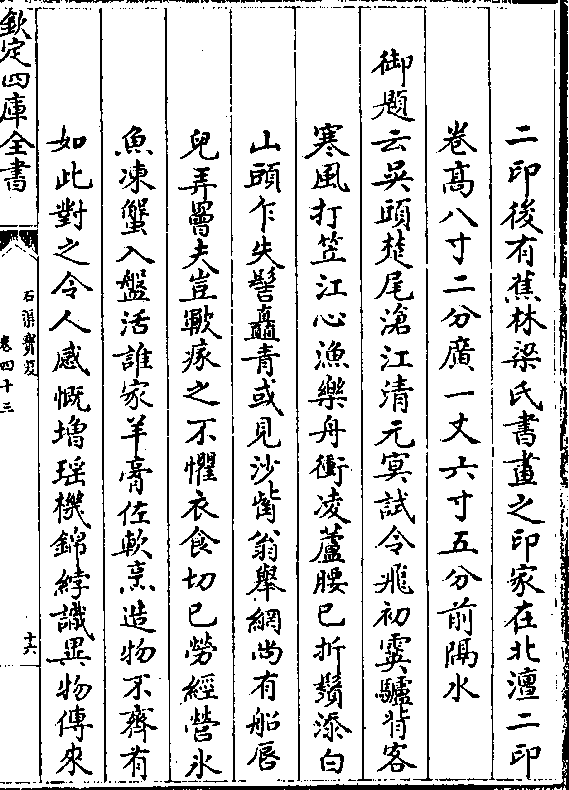 二印後有蕉林梁氏書畫之印家在北澶二印
卷髙八寸二分廣一丈六寸五分前隔水
御題云吳頭楚尾滄江清元冥試令飛初霙驢背客
寒風打笠江心漁樂舟衝凌蘆腰已折鬚添白
山頭乍失髻矗青或見沙觜翁舉網尚有船唇
兒弄罾夫豈皸瘃之不懼衣食切已勞經營氷
魚凍蟹入盤活誰家羊膏佐軟烹造物不齊有
如此對之令人感慨増瑶機錦綍識異物傳來
欽定四庫全書
石渠寳笈
卷四十三
十六